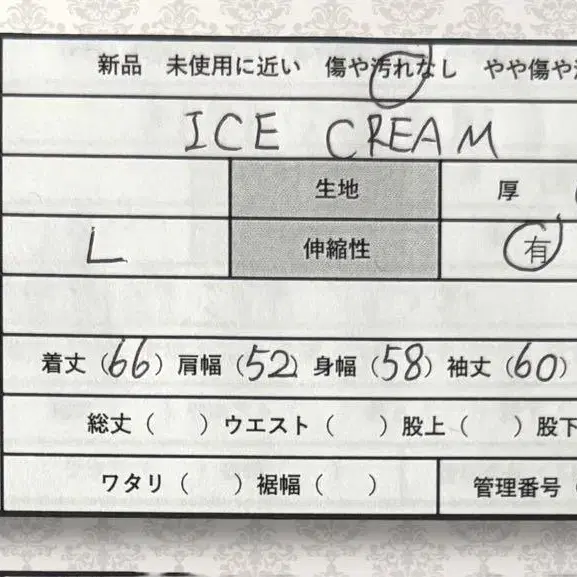 新品 未使用に近い 傷や汚れなし やや傷や
ICE CREAM
生地 厚
L 伸縮性 有
着丈(66) 肩幅(52) 身幅(58) 袖丈(60)
総丈( ) ウエスト( ) 股上( ) 股下
ワタリ( ) 裾幅( ) 管理番号(